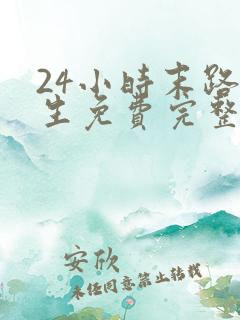 24小时末路
生免費完整
安欣
未经同意禁止转载